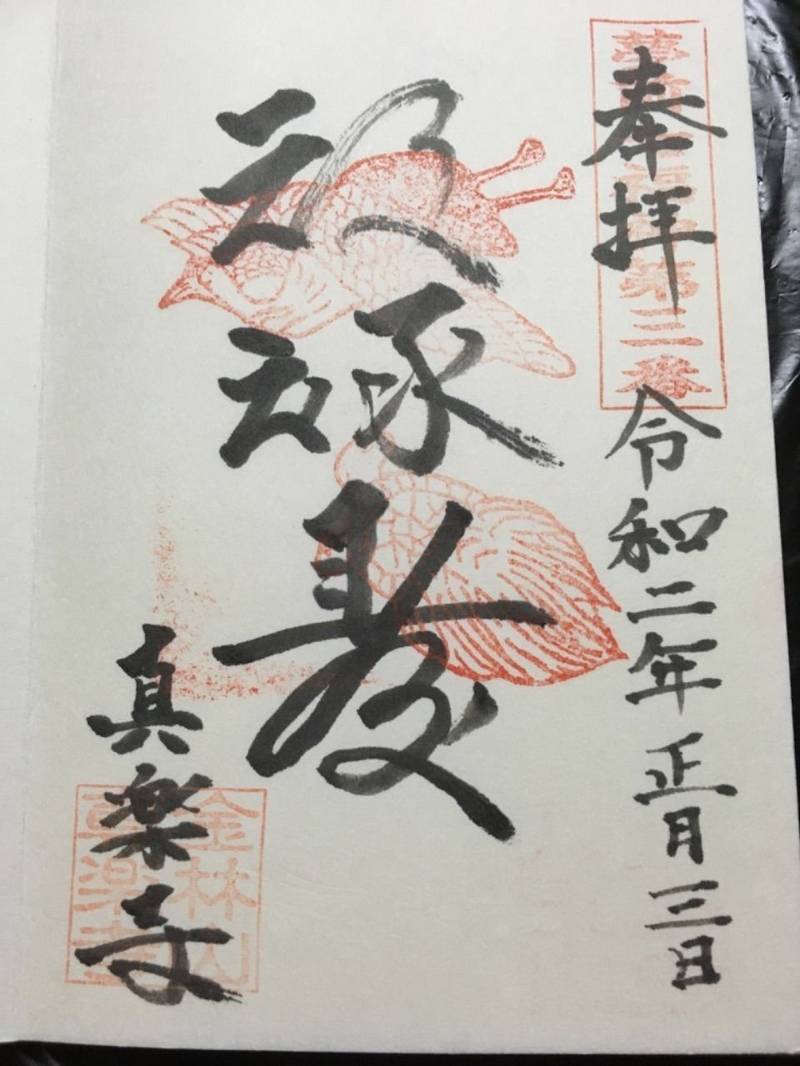 奉拝
令和二年正月三日
福禄寿
真楽寺
第三番
金林山
真楽寺